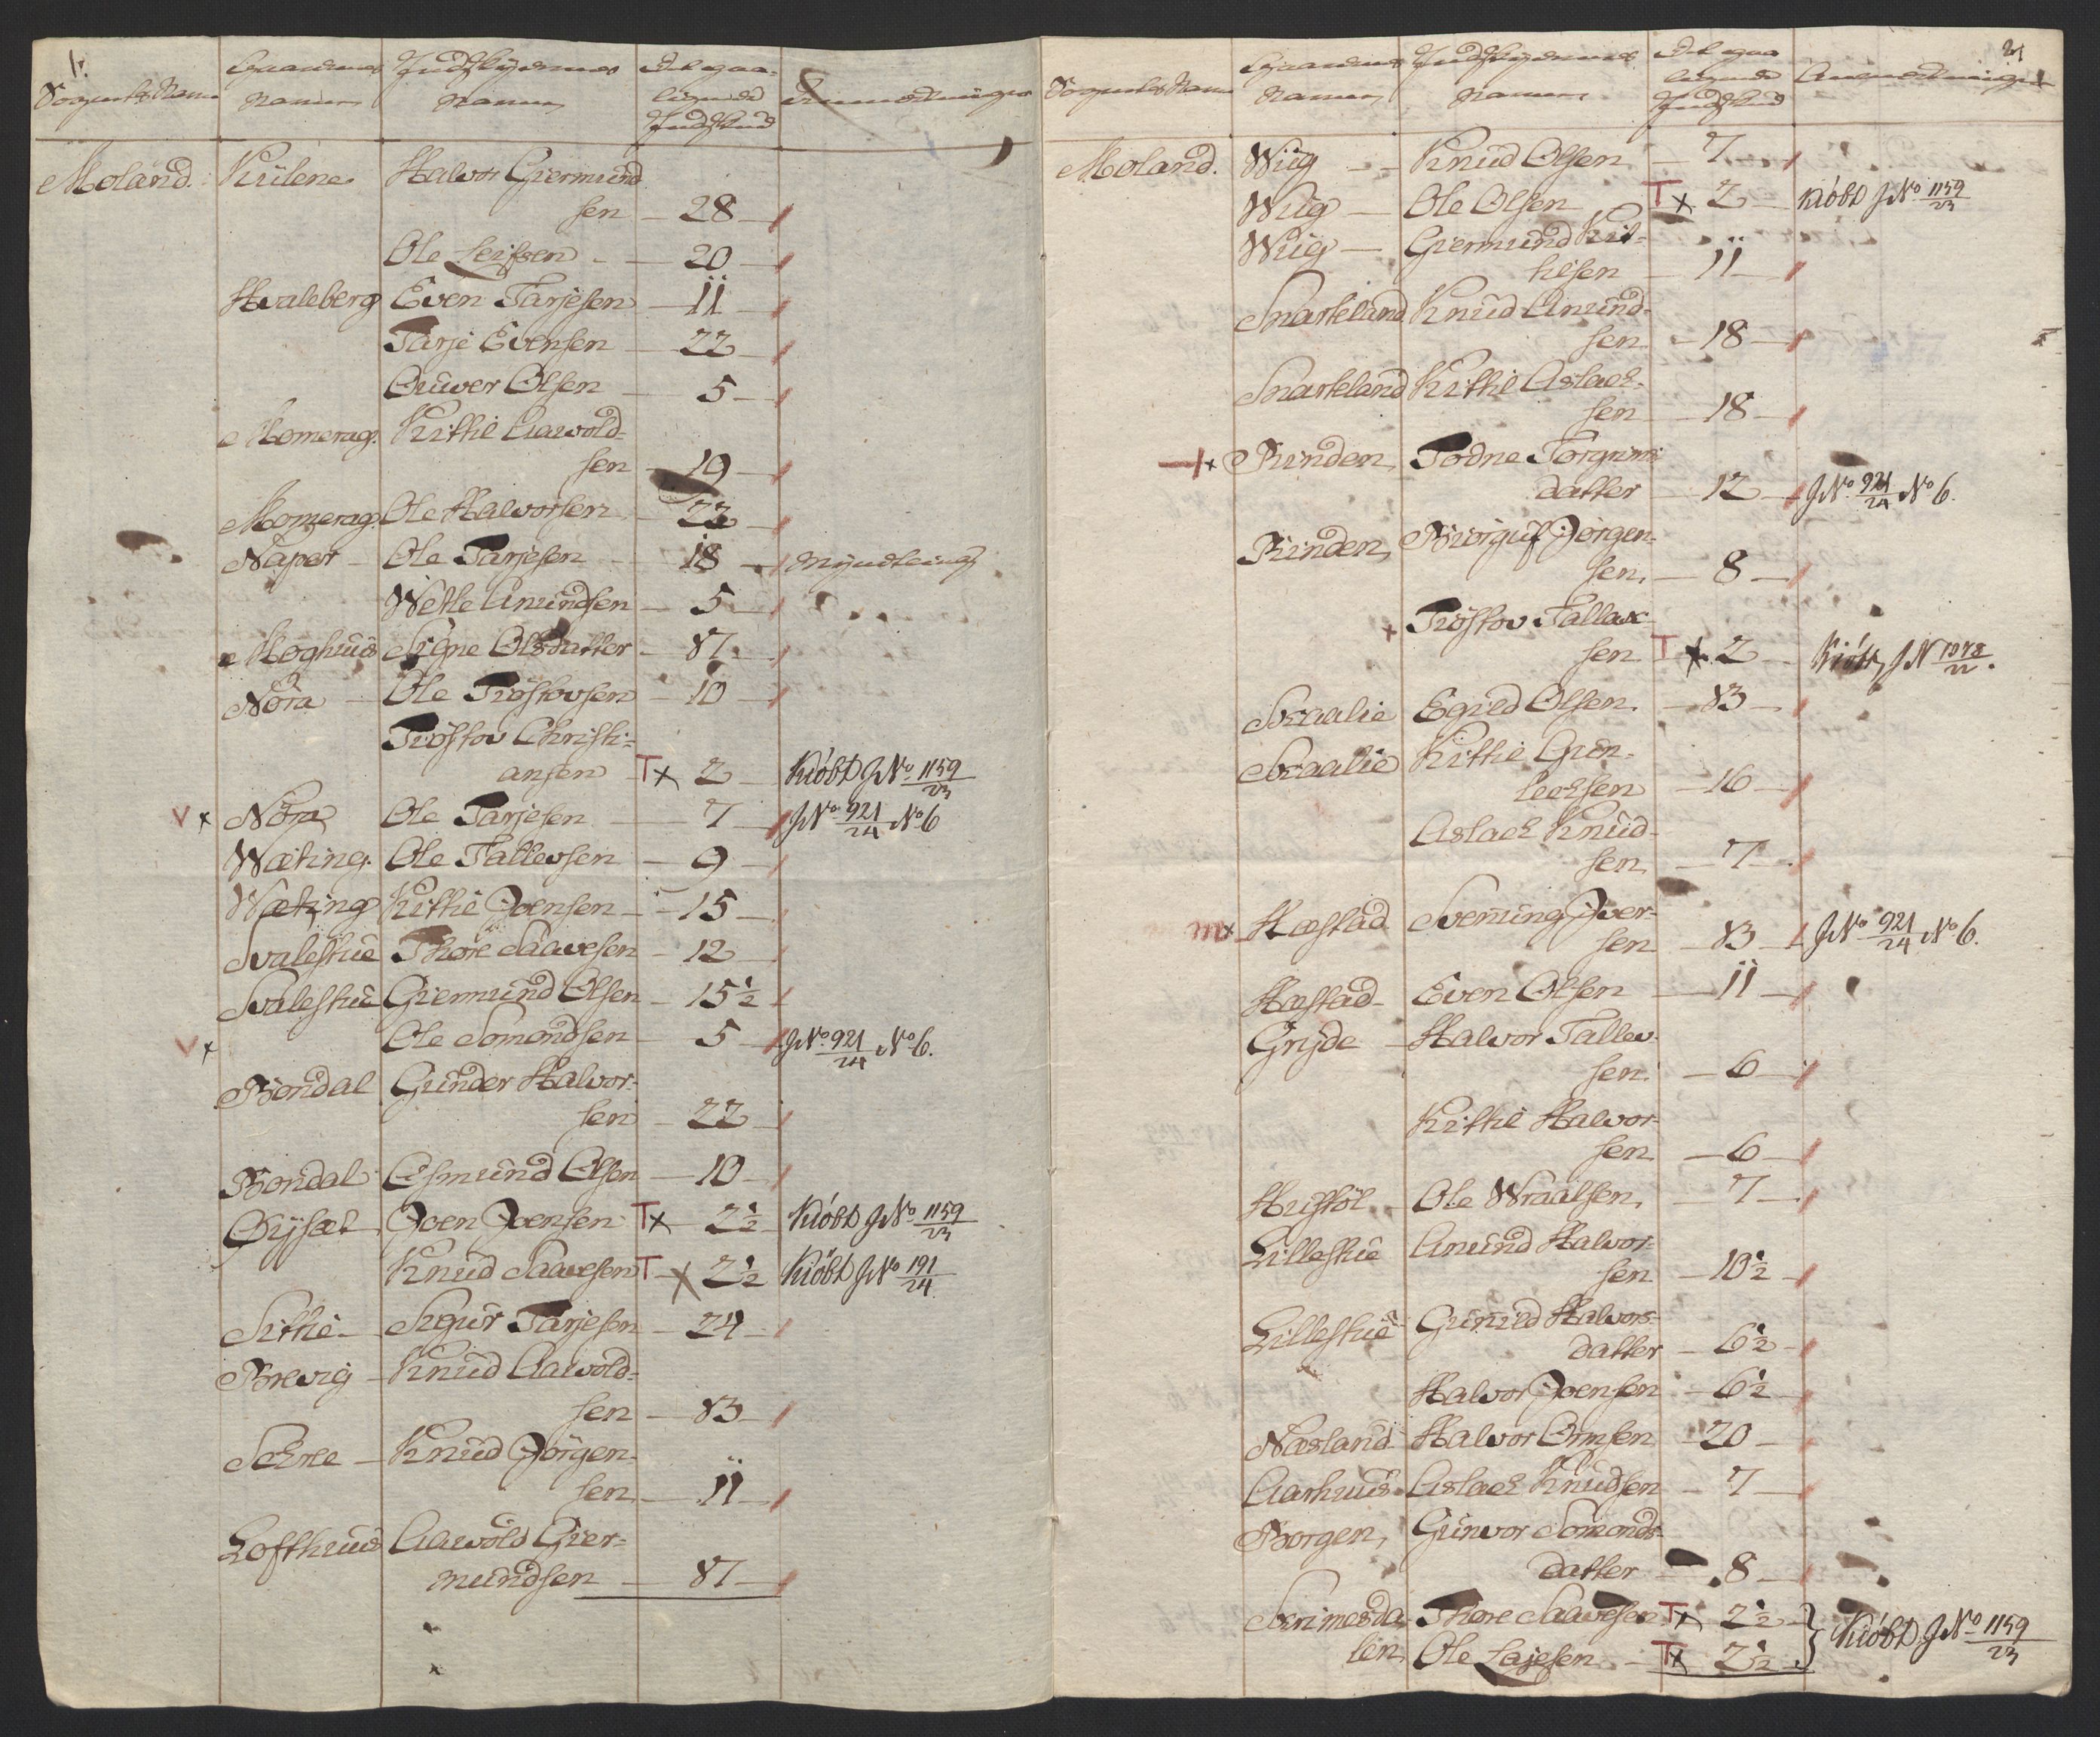 1.
Sognets Navn Gaardenes Navne Indskydernes Navne Det paaliignede Indskud Anmerkninger
Moland. Kulene Halvor Giermund
sen 28
Ole Leifsen 20
Hvaleberg Even Tarjesen 11
Tarje Evensen 22
Ouwer Olsen 5
Momerag. Kittil Aavold-
sen 19
Momerag. Ole Halvorsen 22
Naper Ole Tarjesen 18 Myndtling
Wetle Amundsen 5
Moghuus Signe Olsdatter 87
Nöra Ole Tröstovsen 10
Tröstov Christi-
ansen T x 2 Kiöbt J No 1159/23
V x Nöra Ole Tarjesen 7 J No 921/24 No 6
Wæting. Ole Tallevsen 9
Wæting Kittil Joensen 15
Svalestue Thore Saavesen 12
Svalestue Giermund Olsen 15 1/2
V x Ole Somondsen 5 J No 921/24 No 6.
Bondal Gunder Halvor-
sen 22
Bondal Esmund Olsen 10
Öysæt Joen Joensen T x 2 1/2 Kiöbt J No 1159/23
Knud Saavesen T x 2 1/2 Kiöbt J No 191/24
Sittie Sigur Tarjesen 24
Brevig Knud Aavold-
sen 83
Skree Knud Jörgen-
sen 11
Lofthuus Aavold Gier-
mundsen 87
2
Sognets Navn Gaardenes Navne Indskydernes Navne Det paaliignede Indskud Anmerkninger
Moland. Wiig Knud Olsen 7
Wiig Ole Olsen T x 2 Kiöbt J No 1159/23
Wiig Giermund Kit-
tilsen 11
Snarteland Knud Amund-
sen 18
Snarteland Kittil Aslach-
sen 18
x Rinden, Todne Torgrims
datter 12 J No 921/24 No 6.
Rinden, Biörguf Jörgen-
sen, 8
x Tröstov Tallak-
sen T x 2 Kiöbt, J N 1078/22.
Straalie Egild Olsen. 83
Straalie Kittil Gun-
lechsen 16
Aslach Knud-
sen, 7
m x Hæstad Svenning Iver-
sen 83 J No 921/24 No 6.
Hæstad Even Olsen 11
Gryde Halvor Tallev-
sen 6
Kittil Halvor-
sen 6
Hustöl Ole Wraalsen, 7
Lillestue Amund Halvor-
sen 10 1/2
Lillestue Gunild Halvors-
datter 6 1/2
Halvor Joensen 6 1/2
Næsland Halvor Ormsen 20
Aarhuus Aslach Knudsen 7
Borgen, Gunvor Somonds-
datter 8
Skrimesda- Thore Saavesen T x 2 1/2
len, Ole Lajesen T x 2 1/2 } Kiöbt J No 1159/23